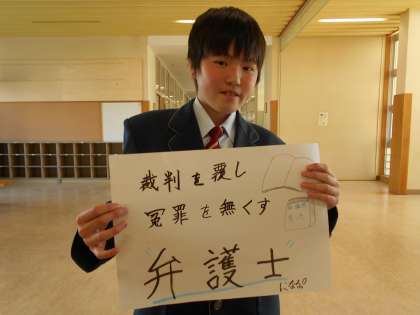 裁判を覆し
冤罪を無くす
"弁護士"
になる。